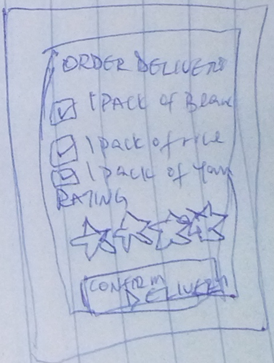 ORDER DELIVERY
1 PACK of Bean
1 pack of rice
1 pack of Yam
RATING
CONFIRM
DELIVERY